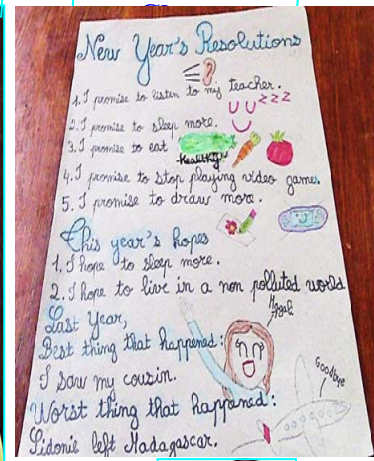 New Year's Resolutions
1. I promise to listen to my teacher.
zzz
2. I promise to sleep more.
3. I promise to eat
healthy
4. I promise to stop playing video games.
5. I promise to draw more.
This year's hopes
1. I hope to sleep more.
2. I hope to live in a non polluted world
Last Year,
Best thing that happened:
I saw my cousin.
Goodbye
Worst thing that happened:
Sidonie left Madagascar.